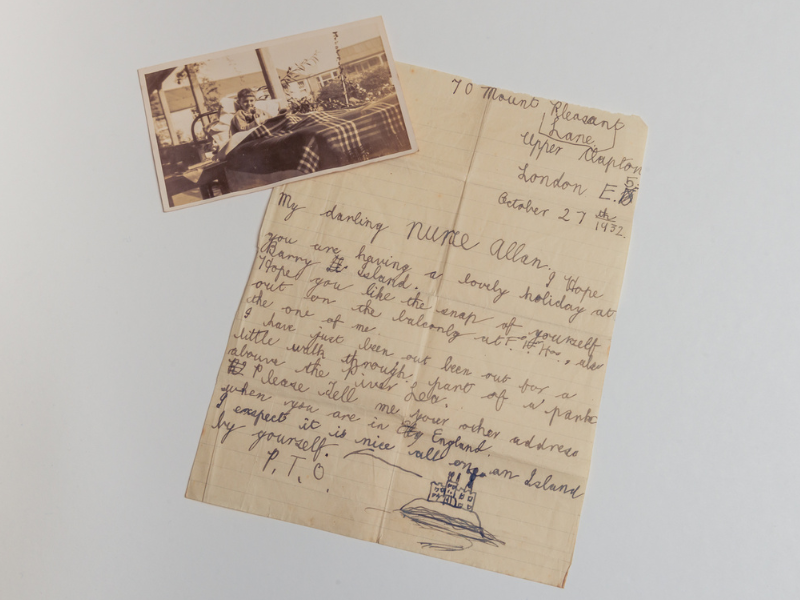 70 Mount Pleasant
Lane.
Upper Clapton
London E.5
October 27th
1932.
My darling Nurse Allan. I Hope
you are having a lovely holiday at
Barry Island.
Hope you like the snap of yourself
out on the balconly at F. H. also
the one of me.
I have just been out been out for a
little walk through part of a park
above the river Lea.
Please Tell me your other address
when you are in England.
I expect it is nice all on an Island
by yourself.
P.T.O.